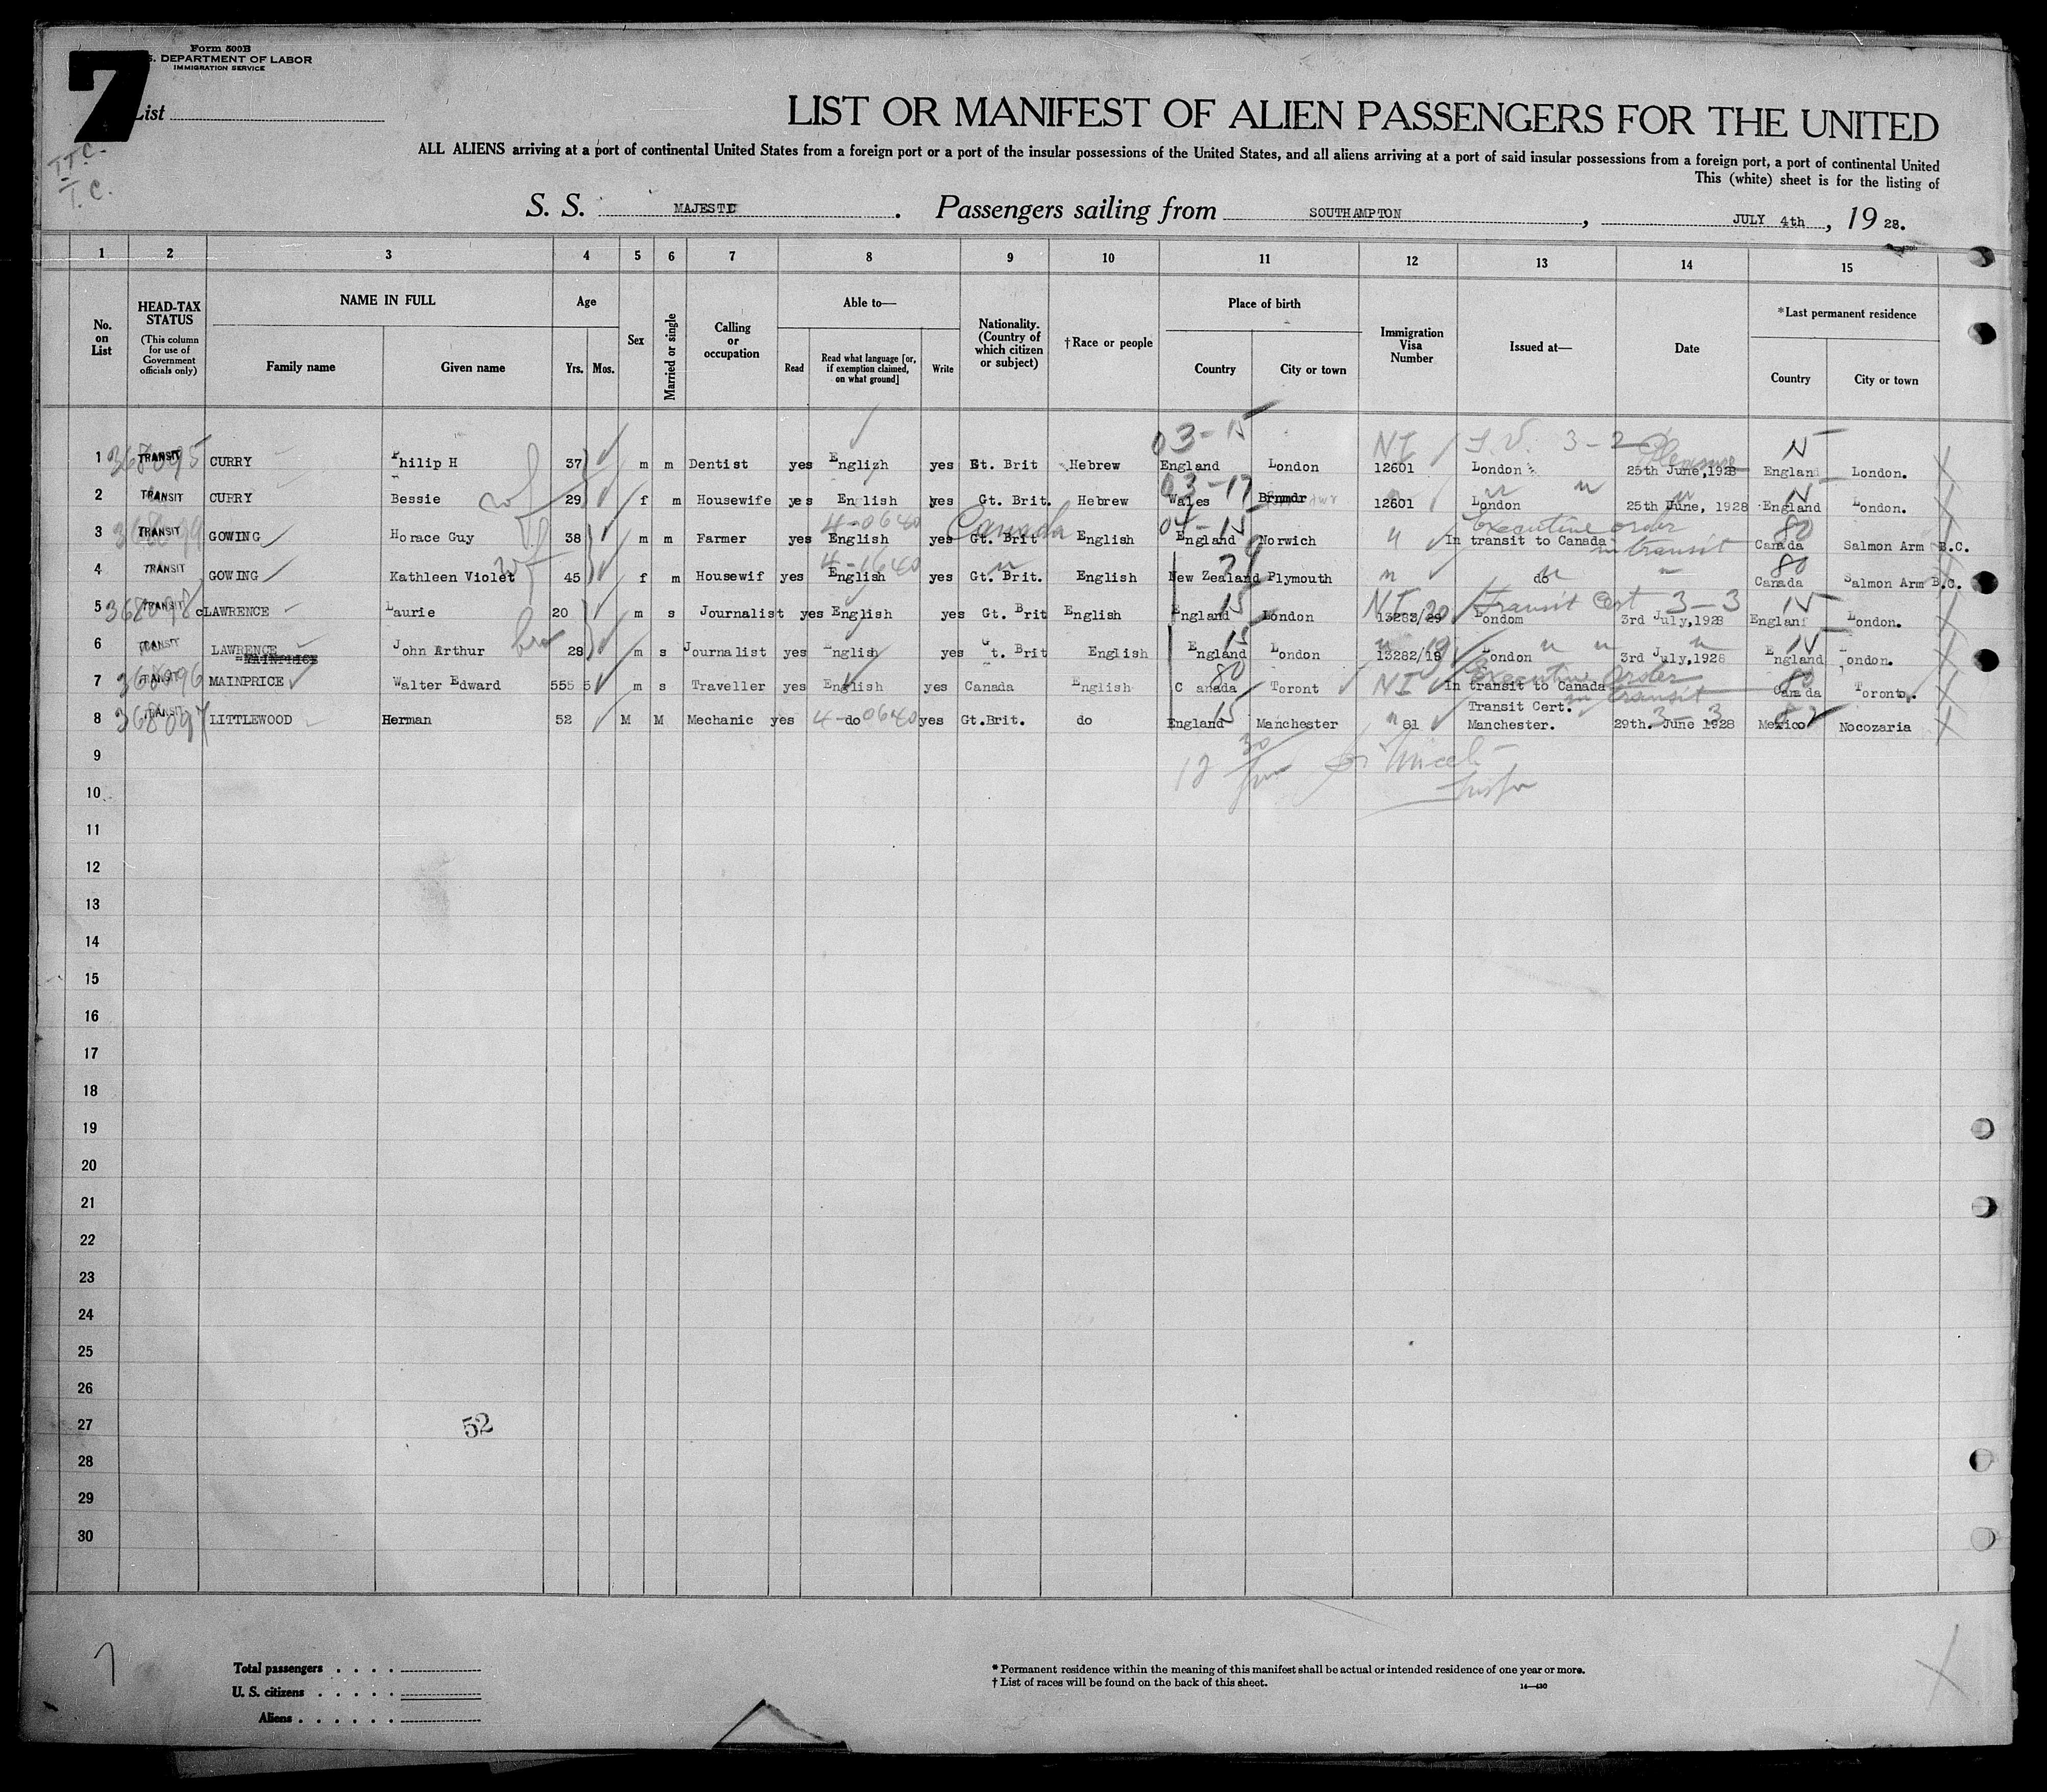 7
Form 500B
S. DEPARTMENT OF LABOR
IMMIGRATION SERVICE
List
T.T.C.
T.C.
LIST OR MANIFEST OF ALIEN PASSENGERS FOR THE UNITED
ALL ALIENS arriving at a port of continental United States from a foreign port or a port of the insular possessions of the United States, and all aliens arriving at a port of said insular possessions from a foreign port, a port of continental United
This (white) sheet is for the listing of
S. S. MAJESTIC. Passengers sailing from SOUTHAMPTON, JULY 4th, 19 28.
1 2 3 4 5 6 7 8 9 10 11 12 13 14 15
No. on List
HEAD-TAX STATUS
(This column for use of Government officials only)
NAME IN FULL
Family name Given name
Age
Yrs. Mos.
Sex
Married or single
Calling or occupation
Able to—
Read
Read what language [or, if exemption claimed, on what ground]
Write
Nationality. (Country of which citizen or subject)
†Race or people
Place of birth
Country City or town
Immigration Visa Number
Issued at—
Date
*Last permanent residence
Country City or town
03-15 NI 3-2 Pleasure
1 368095 TRANSIT CURRY Philip H 37 m m Dentist yes Englizh yes Gt. Brit Hebrew England London 12601 London 25th June,1928 Englan London.
03-17
2 TRANSIT CURRY Bessie wf 29 f m Housewife yes English yes Gt. Brit. Hebrew Wales 12601 London 25th June, 1928 England London.
4-0640 Canada 04-15 Executive order 80
3 368099 TRANSIT GOWING Horace Guy 38 m m Farmer yes English yes Gt. Brit English England Norwich In transit to Canada in transit Canada Salmon Arm B.C.
4-1640 80
4 TRANSIT GOWING Kathleen Violet wf 45 f m Housewif yes English yes Gt. Brit. English New Zealand Plymouth do Canada Salmon Arm B.C.
15 NI Transit Cert 3-3 15
5 368098 TRANSIT cLAWRENCE Laurie 20 m s Journalist yes English yes Gt. Brit English England London 13283/29 Londom 3rd July,1928 England London.
15 15
6 TRANSIT LAWRENCE John Arthur bro 28 m s Journalist yes English yes Gt. Brit English England London 13282/19 London 3rd July,1928 England London.
MAINPRICE
80 NI Executive Order 80
7 368096 TRANSIT MAINPRICE Walter Edward 555 5 m s Traveller yes English yes Canada English C anada Toront In transit to Canada in transit Canada Toronto.
15 Transit Cert. 3-3 82
8 368097 TRANSIT LITTLEWOOD Herman 52 M M Mechanic yes 4-do0640 yes Gt.Brit. do England Manchester 81 Manchester. 29th. June 1928 Mexico Nocozaria
9
12 30
10
11
12
13
14
15
16
17
18
19
20
21
22
23
24
25
26
27 52
28
29
30
7
Total passengers . . . .
U. S. citizens . . . . .
Aliens . . . . . .
* Permanent residence within the meaning of this manifest shall be actual or intended residence of one year or more.
† List of races will be found on the back of this sheet.
14—430